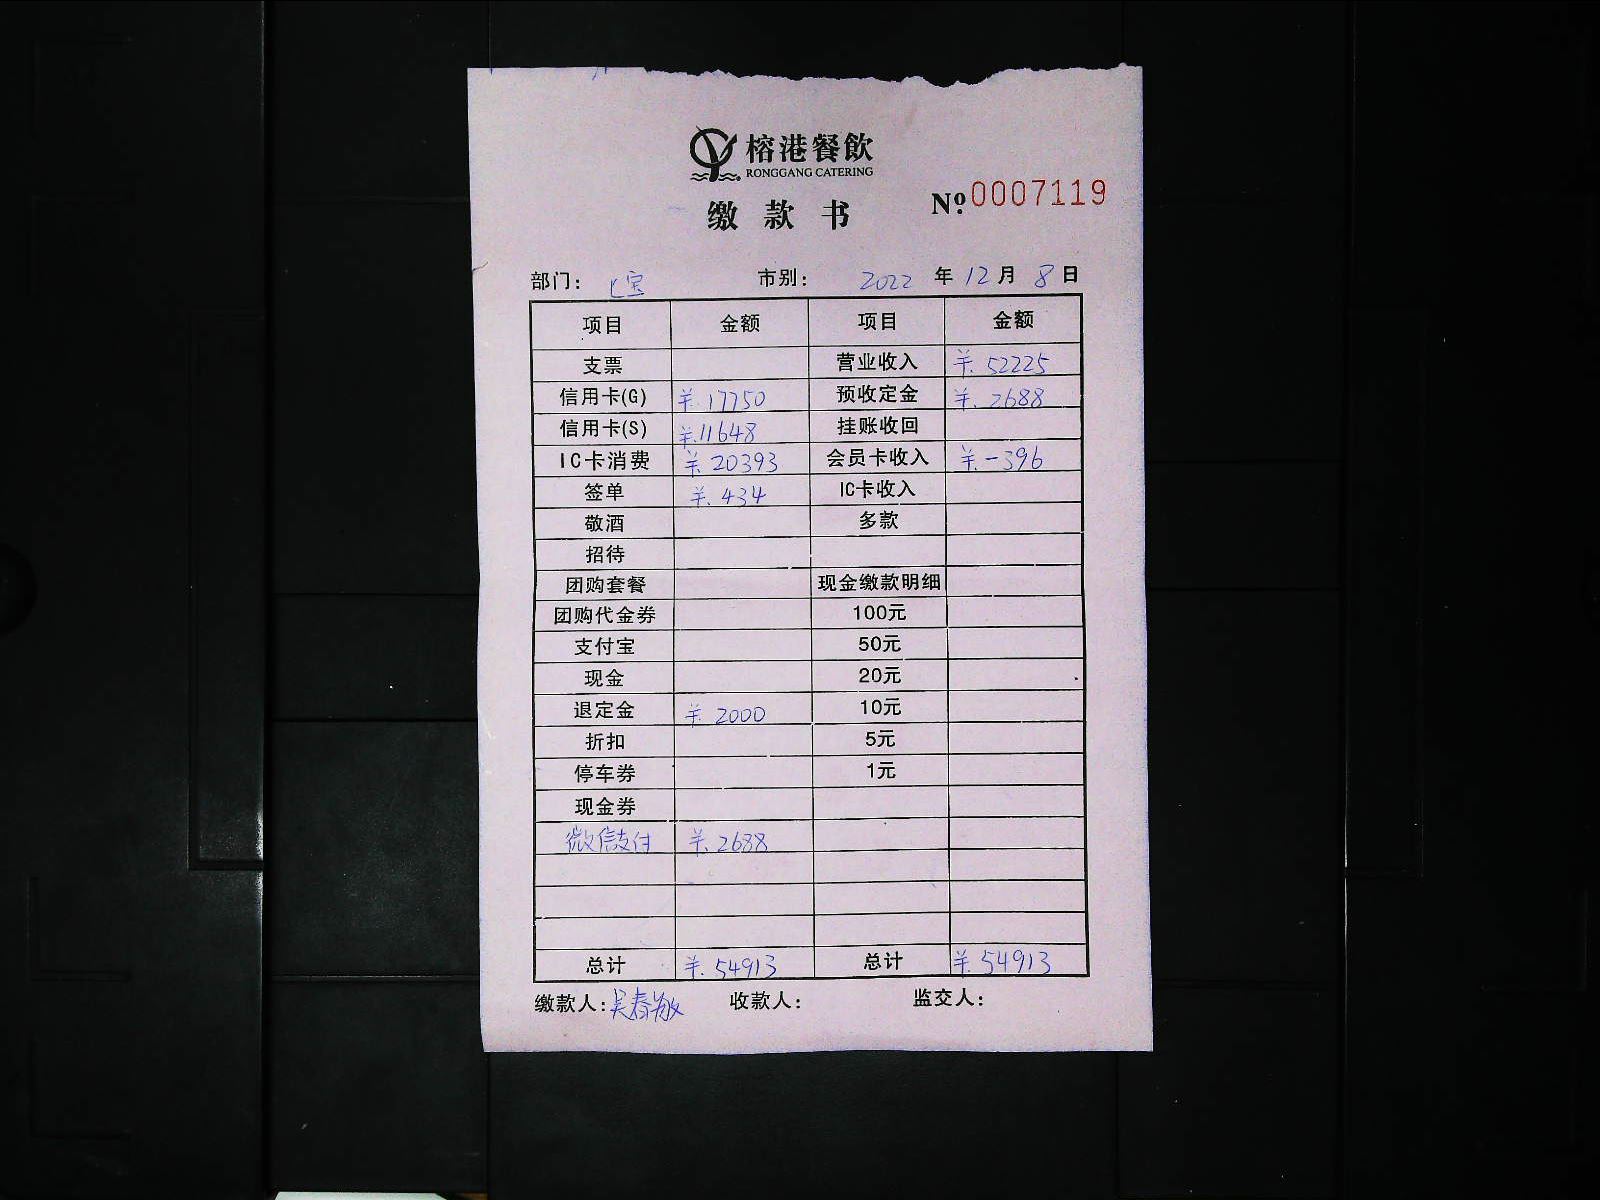 榕港餐飲
RONGGANG CATERING
缴款书 Nº.0007119
部门: 七宝 市别: 2022 年 12 月 8 日
项目 金额 项目 金额
支票 营业收入 ¥. 52225
信用卡(G) ¥. 17750 预收定金 ¥. 2688
信用卡(S) ¥. 11648 挂账收回
IC卡消费 ¥. 20393 会员卡收入 ¥. -396
签单 ¥. 434 IC卡收入
敬酒 多款
招待
团购套餐 现金缴款明细
团购代金券 100元
支付宝 50元
现金 20元
退定金 ¥. 2000 10元
折扣 5元
停车券 1元
现金券
微信支付 ¥. 2688
总计 ¥. 54913 总计 ¥. 54913
缴款人: 吴春敏 收款人: 监交人: